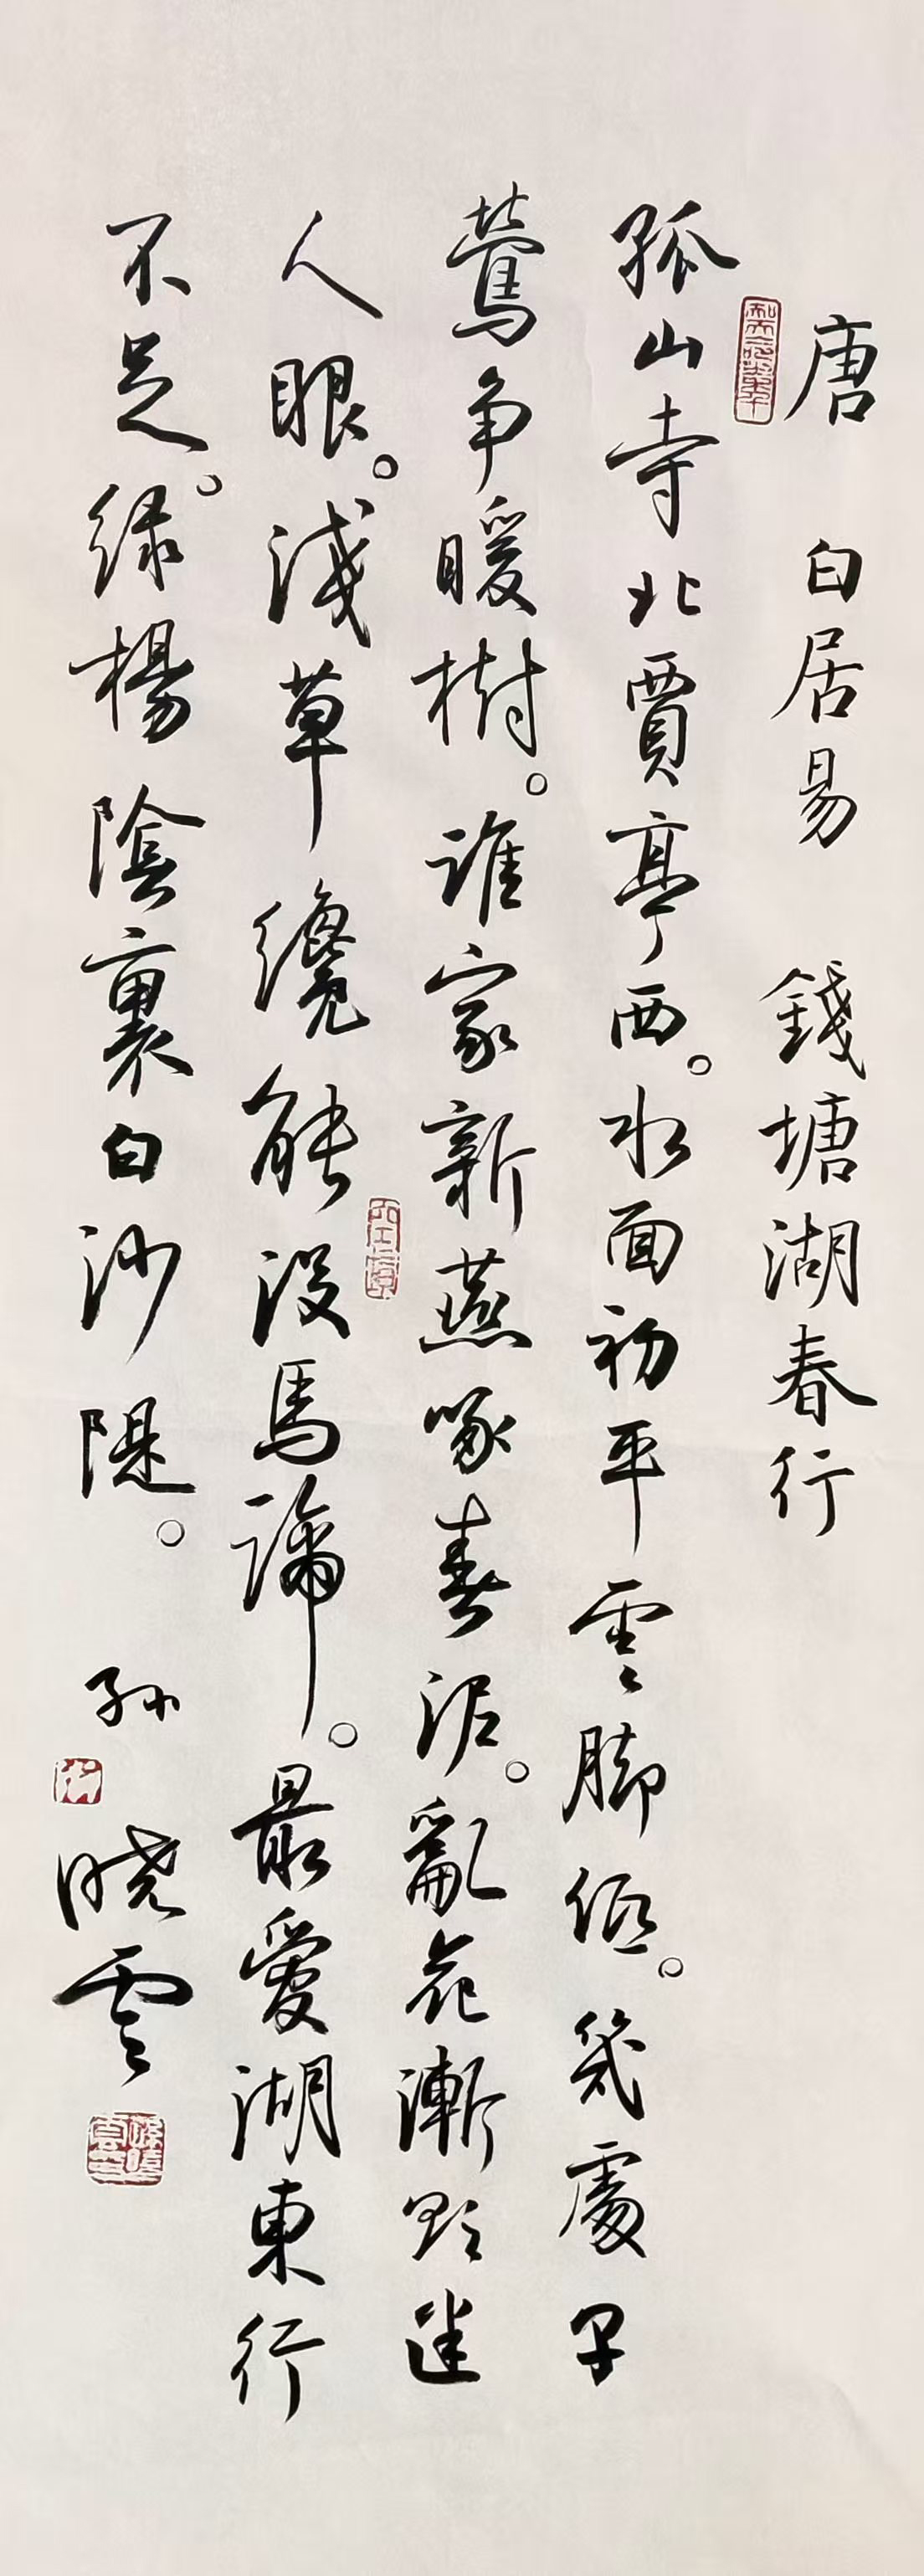 唐 白居易 錢塘湖春行
孤山寺北賈亭西。水面初平雲脚低。幾處早
鶯争暖樹。誰家新燕啄春泥。亂花漸欲迷
人眼。淺草纔能没馬蹄。最愛湖東行
不足。緑楊陰裏白沙隄。 孙晓雲